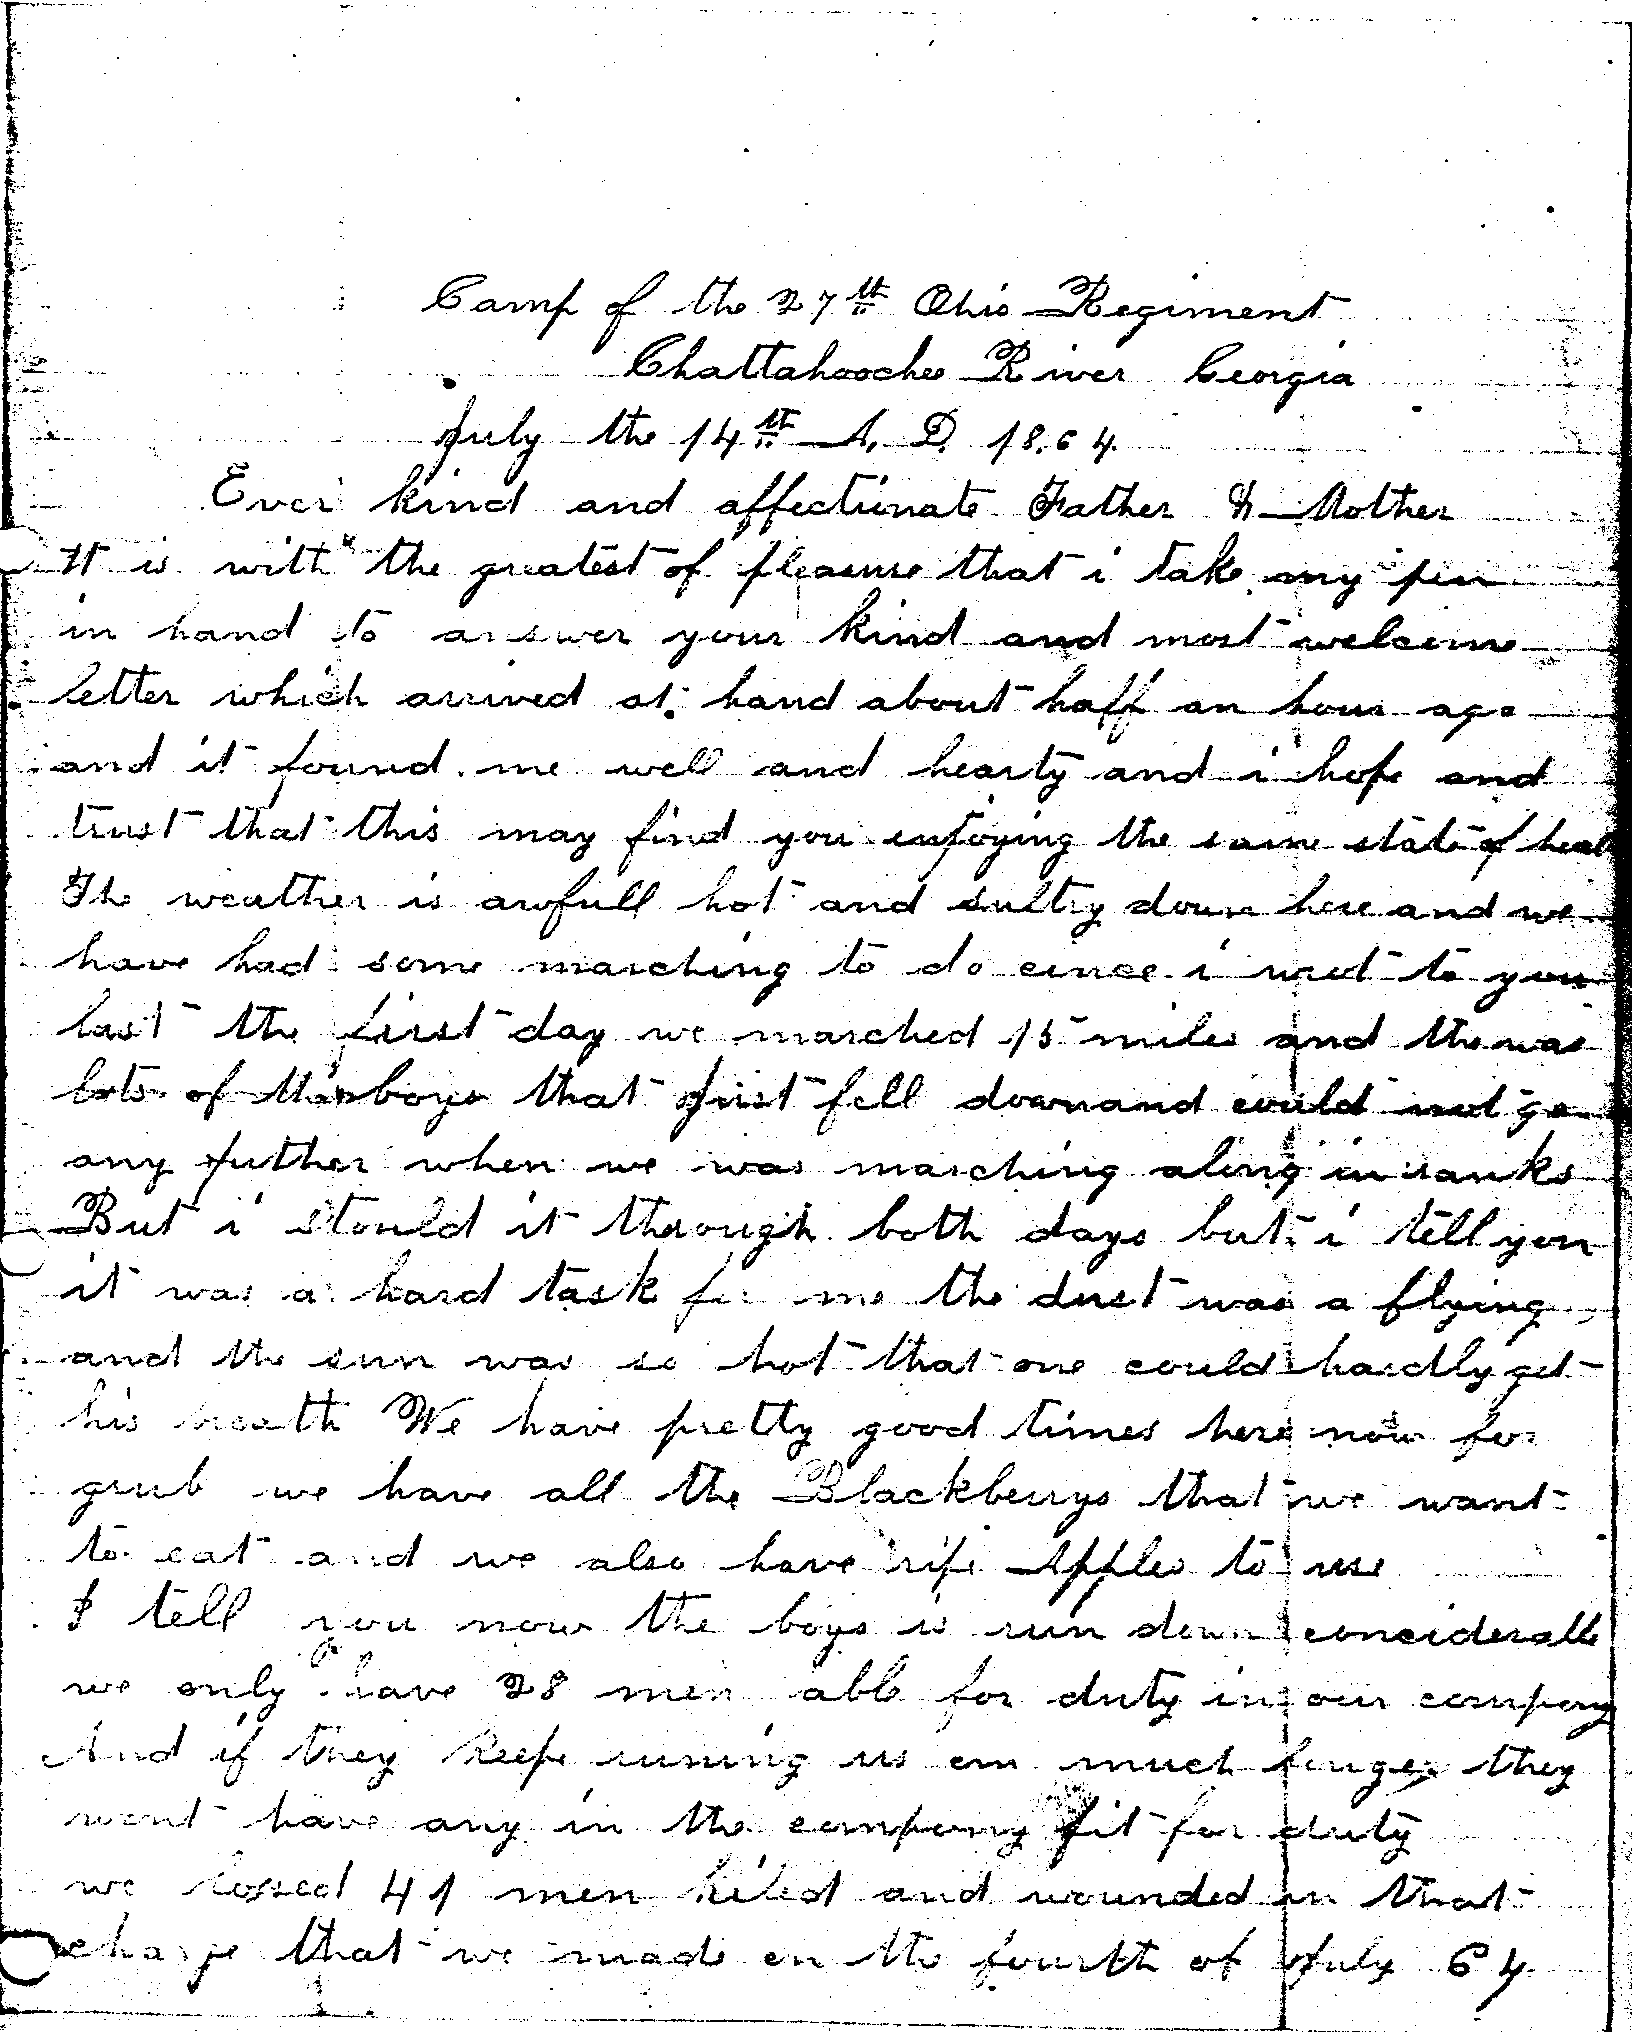 Camp of the 27th Ohio Regiment
Chattahooche River Georgia
July the 14th A. D. 1864
Ever kind and affectionate Father & Mother
It is with the greatest of pleasure that i take my pen
in hand to answer your kind and most welcome
letter which arrived at hand about haff an hour ago
and it found me well and hearty and i hope and
trust that this may find you enjoying the same state of heal
The weather is awfull hot and sultry down here and we
have had some marching to do cince i
last the first day we marched 15 miles and the was
lots of the boys that just fell down and could not go
any futher when we was marching along in ranks
But i stould it through both days but i tell you
it was a hard task for me the dust was a flying
and the sun was so hot that one could hardly get
his breath We have pretty good times here now for
grub we have all the Blackberrys that we want
to eat and we also have ripe Apples to use
I tell you now the boys is run down conciderable
we only have 28 men able for duty in our company
And if they keep runing us on much longer they
wont have any in the company fit for duty
we lossed 41 men killed and wounded in that
charge that we made on the fourth of July 64